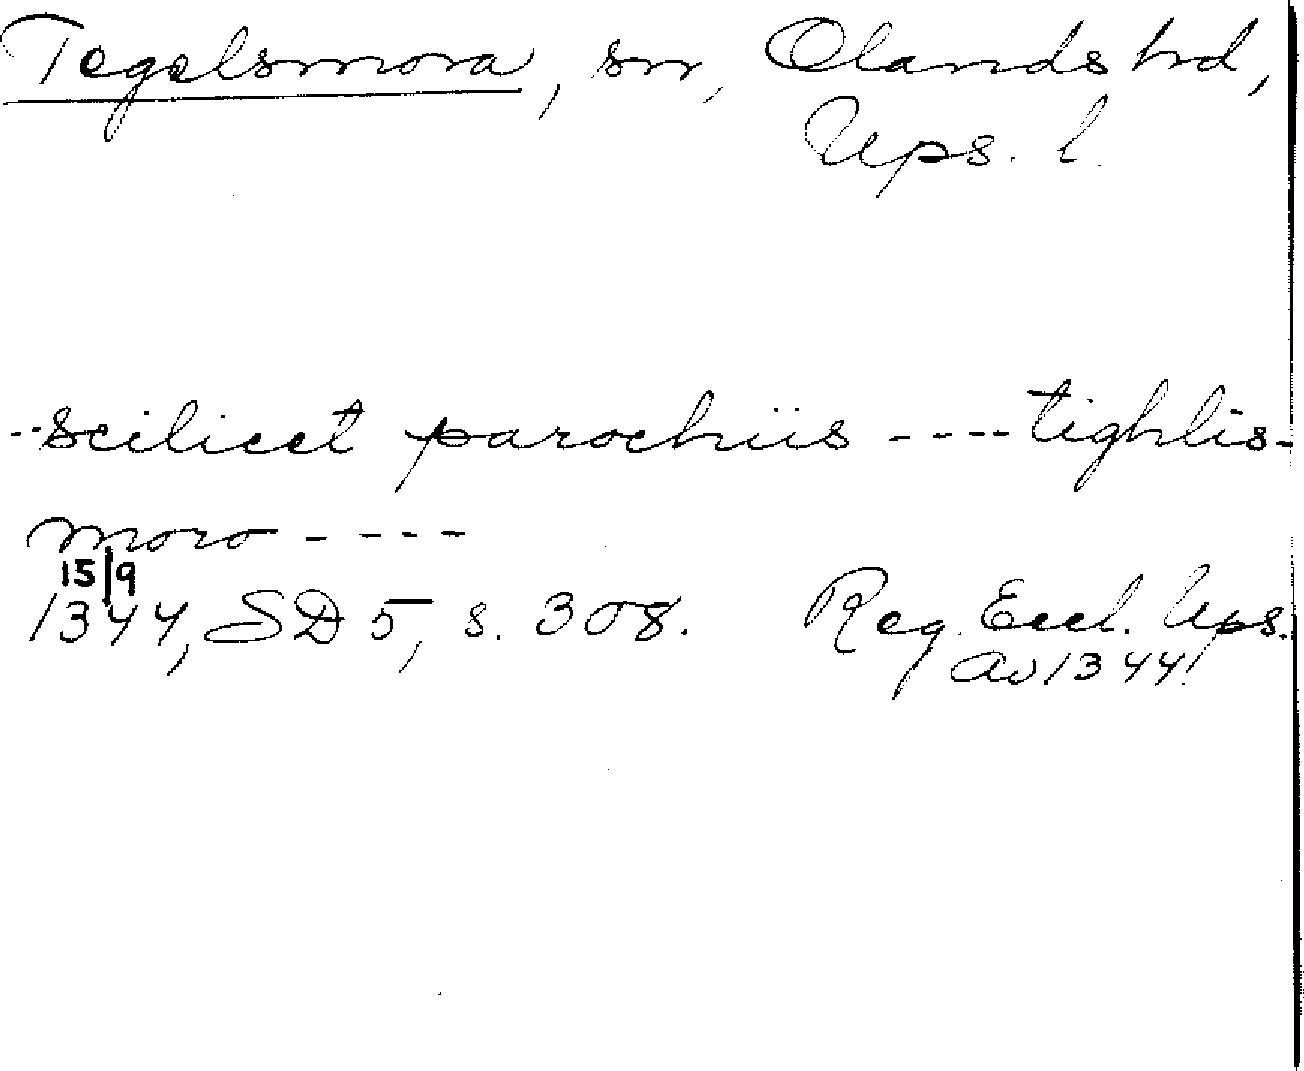 Tegelsmora, sn, Olands hd,
Ups. l.
--scilicet parochiis ----tighlis-
moro ----
15/9
1344, SD 5, s. 308. Reg. Eccl. Ups.
av 1344!